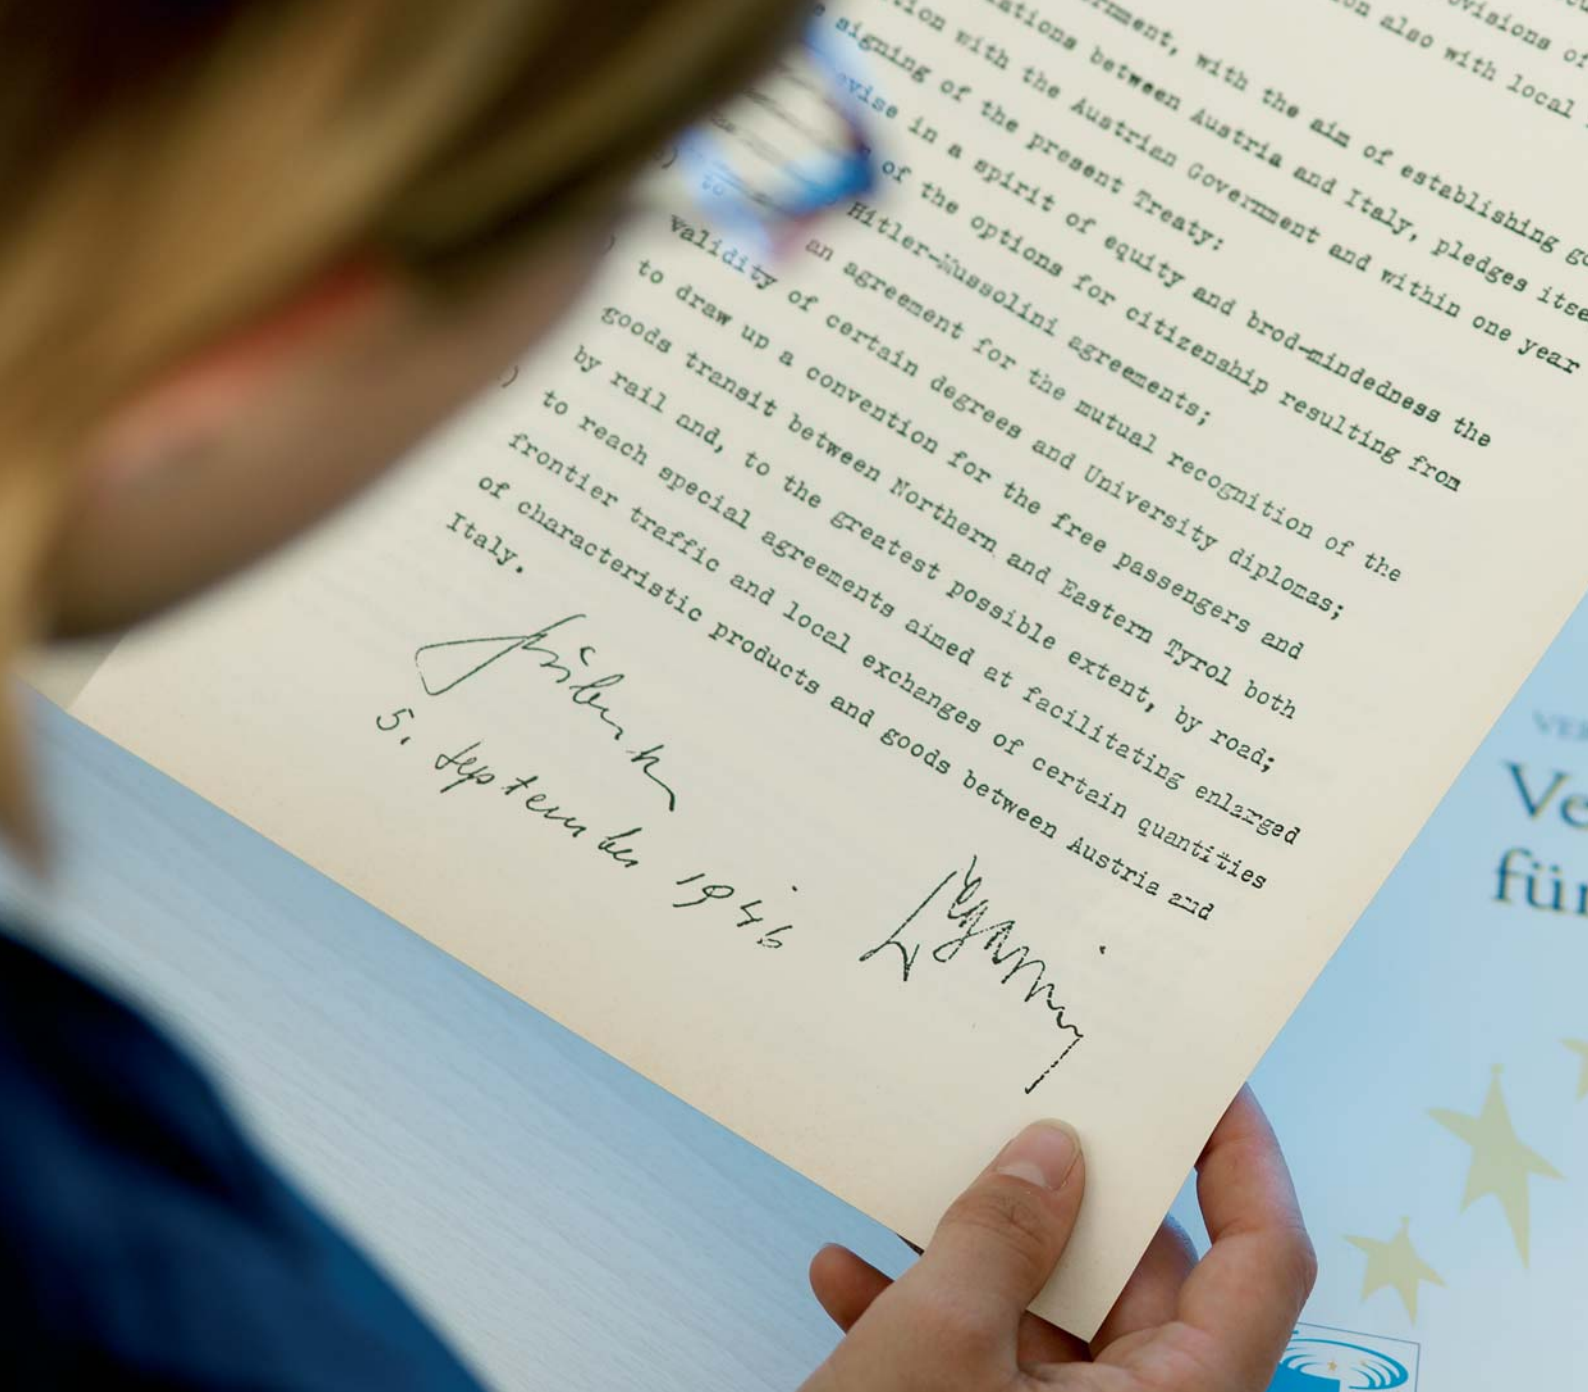 ovisions of
on also with local
rnment, with the aim of establishing go
ations between Austria and Italy, pledges itse
tion with the Austrian Government and within one year
signing of the present Treaty:
evise in a spirit of equity and brod-mindedness the
of the options for citizenship resulting from
Hitler-Mussolini agreements;
to an agreement for the mutual recognition of the
validity of certain degrees and University diplomas;
) to draw up a convention for the free passengers and
goods transit between Northern and Eastern Tyrol both
by rail and, to the greatest possible extent, by road;
) to reach special agreements aimed at facilitating enlarged
frontier traffic and local exchanges of certain quantities
of characteristic products and goods between Austria and
Italy.
5. September 1946
VER
Ve
für